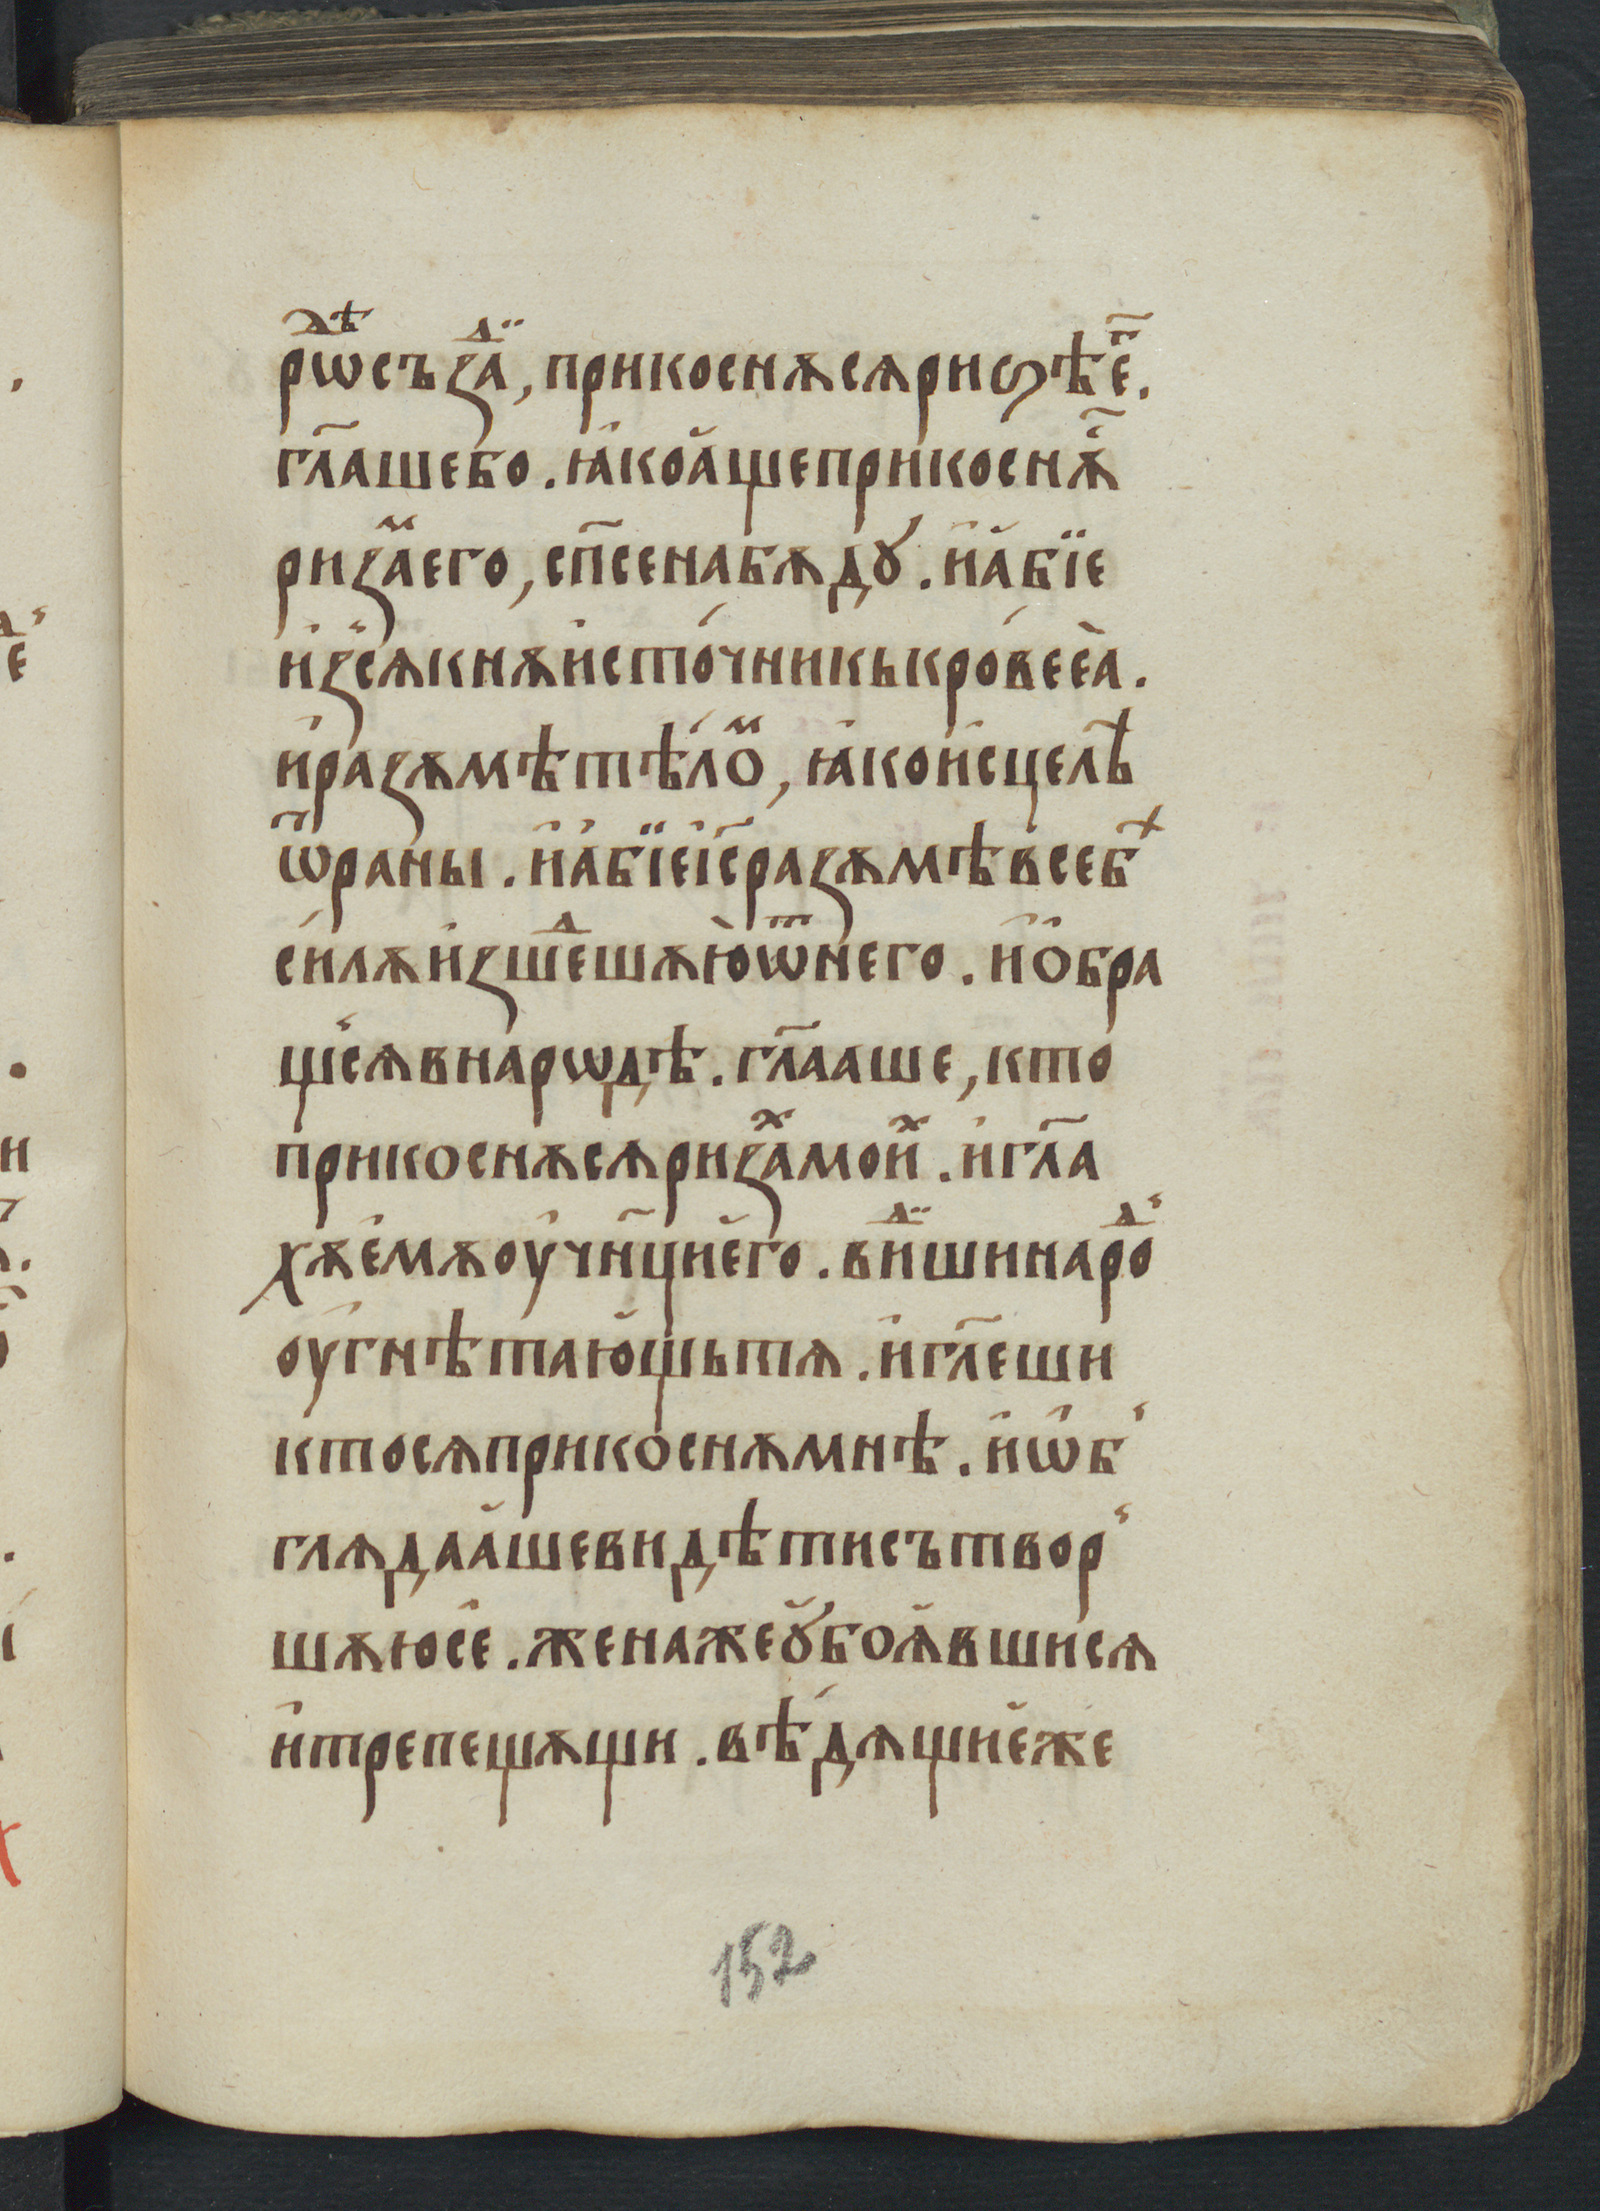 рѡⷣ҇ѣ съꙁаⷣ , прикоснѫсѧ риѕѣ е҃г .
гл҃аше бо . ꙗ҆ко а҆ще прикоснѫ҃
риꙁаⷨ его , сп҃сена бѫдꙋ . и҆ а҆бїе
и҆ꙁсѧкнѫ и҆сто́чникь кро́ве еѧ̀ .
и҆ раꙁѫмѣ тѣ́лоⷨ , ꙗ҆ко и҆сцелѣ҃
ѿ раны . и҆ а҆бїе і҆с҃ раꙁѫмѣ в себⷯѣ
силѫ и҆ꙁшеⷣшѫю̀ ѿ него . и҆ ѻ҆бра
щⸯсѧ в нарѡдѣ . гл҃ааше , кто
прикоснѫсѧ риꙁаⷯ моиⷯ . и҆ гл҃а
хѫ е҆мѫ оу҆чн҃ци е҆го . виⷣши нароⷣ
оу҆гнѣтаю҆щь тѧ . и҆ гл҃еши
кто сѧ прикоснѫ мнѣ . и҆ ѡ҆бⸯ
глѧдаа҆ше видѣти сътворⸯ
шѫю се . жена же ꙋ҆боѧ҆вшисѧ
и҆ трепещѫщи . вѣ́дѧщи е҆же
152